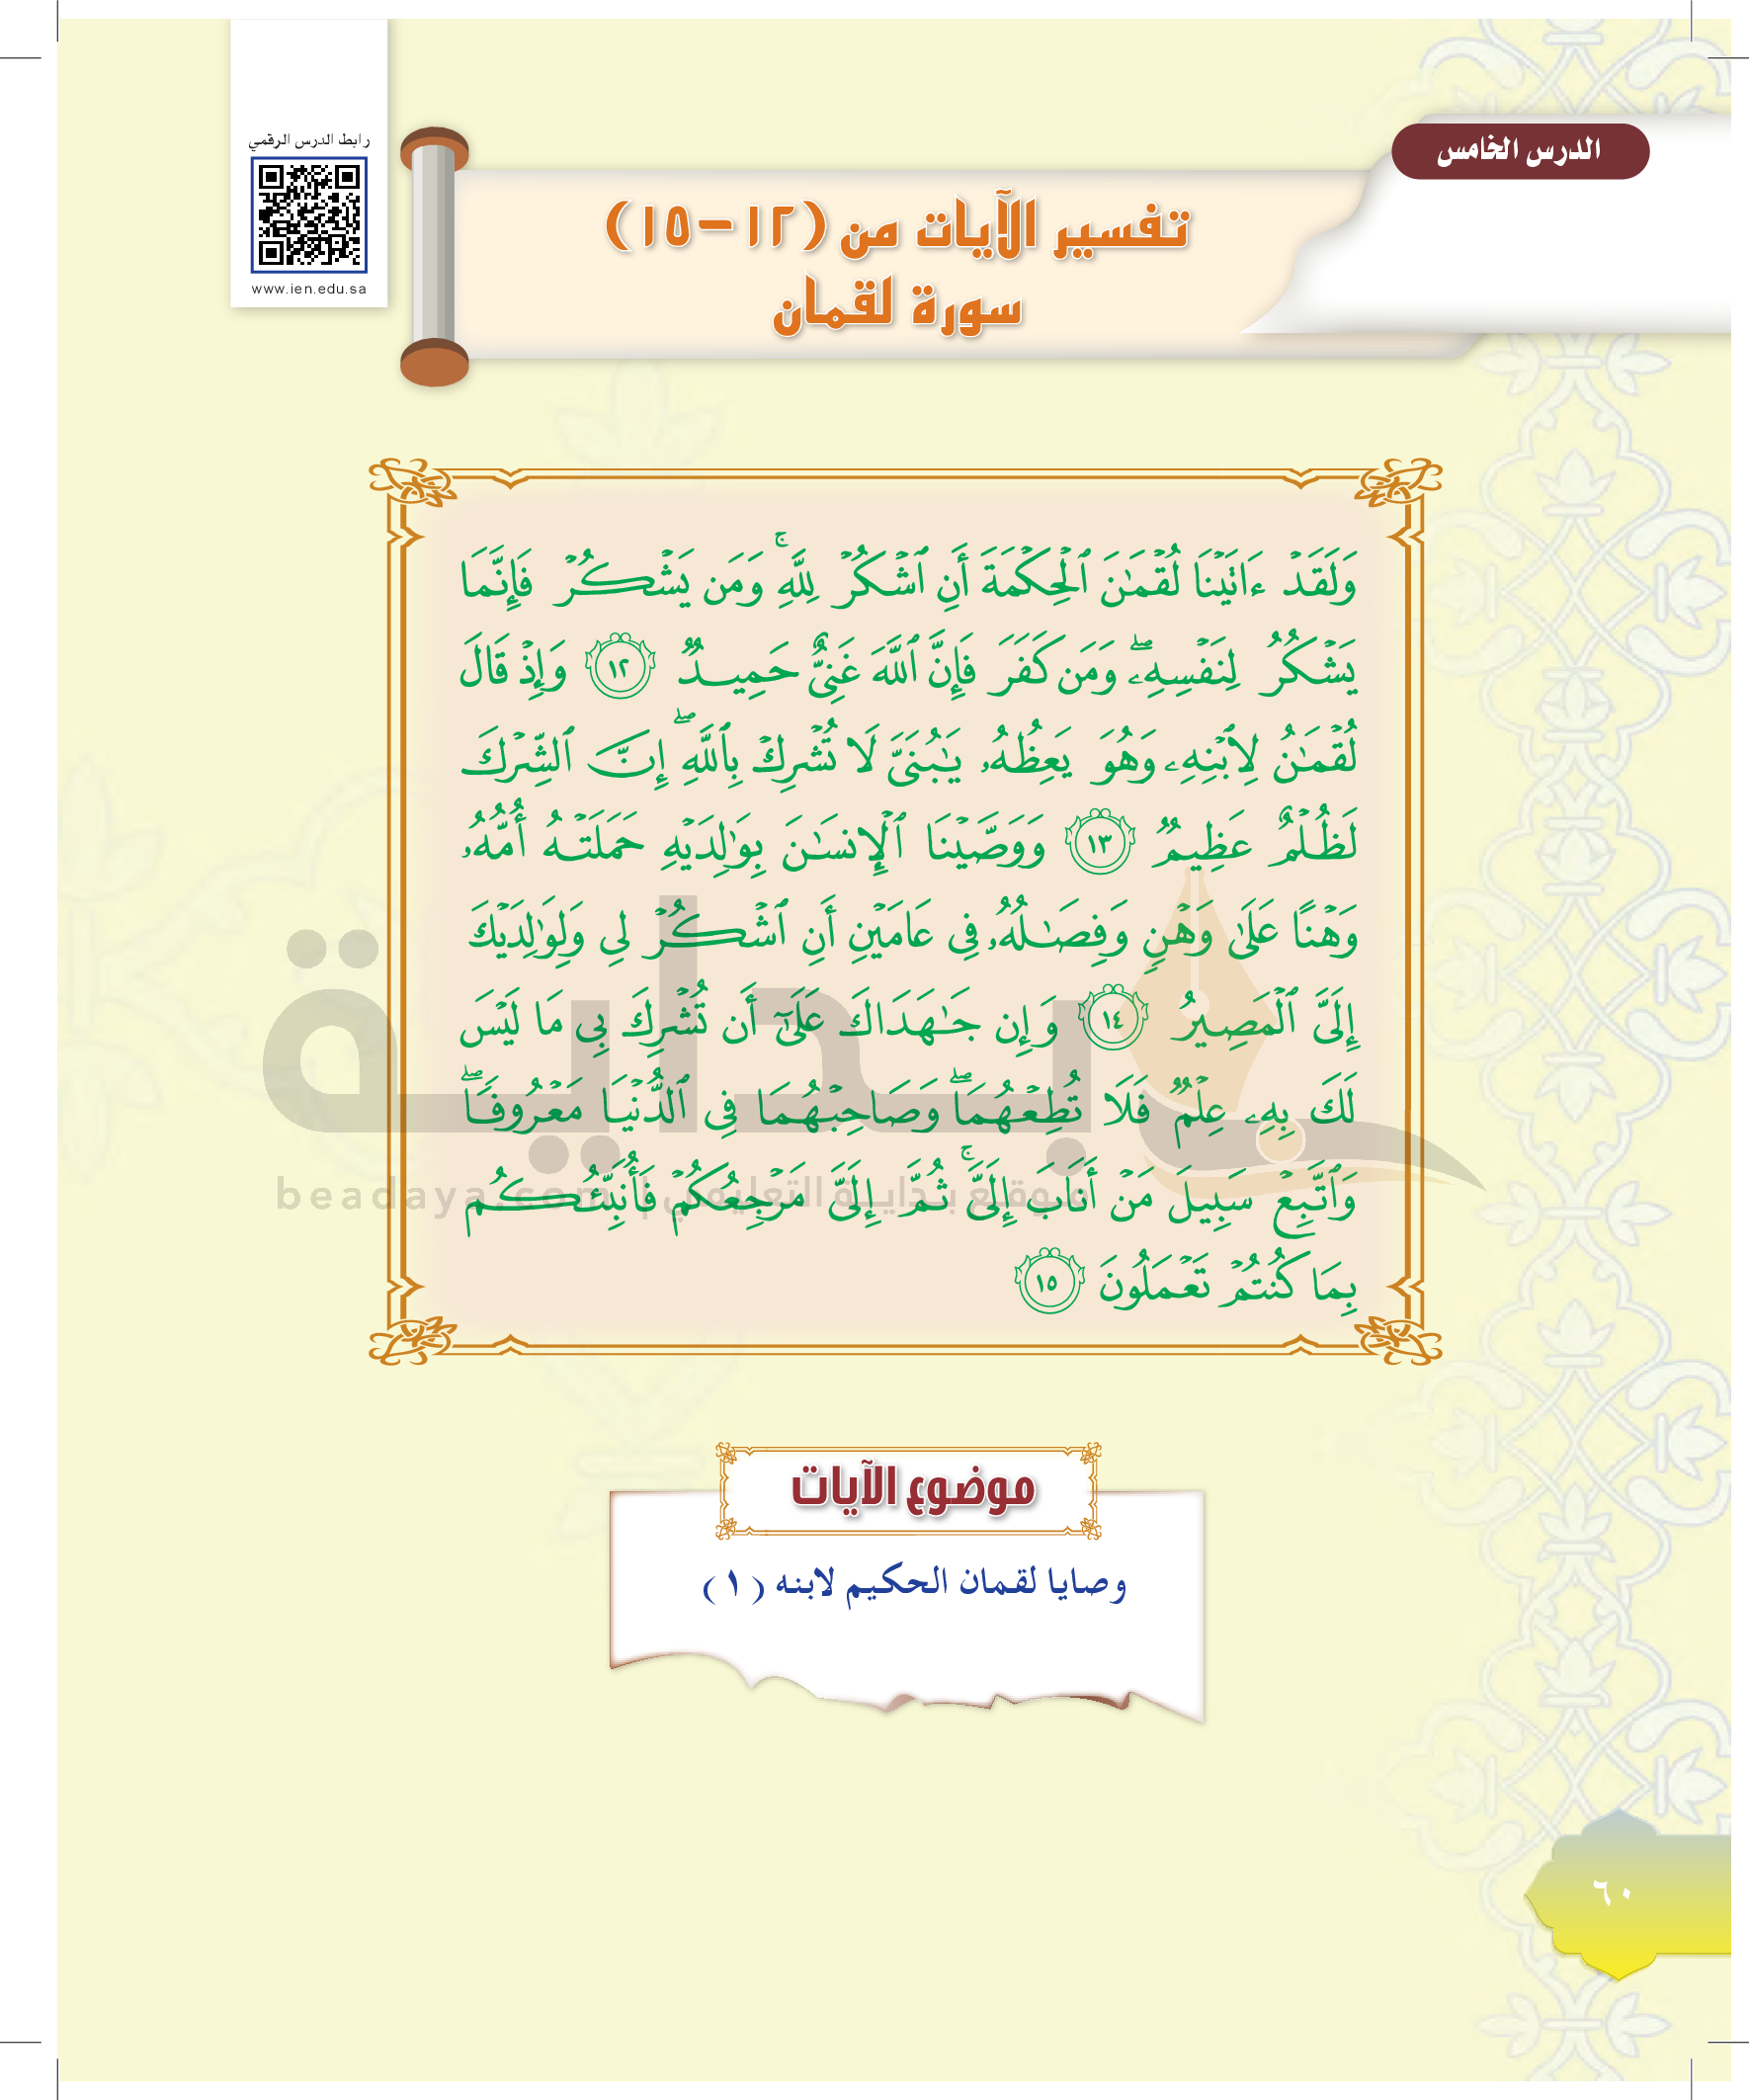 الدرس الخامس
رابط الدرس الرقمي
www.ien.edu.sa
تفسير الآيات من (١٢-١٥)
سورة لقمان
وَلَقَدۡ ءَاتَيۡنَا لُقۡمَٰنَ ٱلۡحِكۡمَةَ أَنِ ٱشۡكُرۡ لِلَّهِۚ وَمَن يَشۡكُرۡ فَإِنَّمَا
يَشۡكُرُ لِنَفۡسِهِۦۖ وَمَن كَفَرَ فَإِنَّ ٱللَّهَ غَنِيٌّ حَمِيدٞ ١٢ وَإِذۡ قَالَ
لُقۡمَٰنُ لِٱبۡنِهِۦ وَهُوَ يَعِظُهُۥ يَٰبُنَيَّ لَا تُشۡرِكۡ بِٱللَّهِۖ إِنَّ ٱلشِّرۡكَ
لَظُلۡمٌ عَظِيمٞ ١٣ وَوَصَّيۡنَا ٱلۡإِنسَٰنَ بِوَٰلِدَيۡهِ حَمَلَتۡهُ أُمُّهُۥ
وَهۡنًا عَلَىٰ وَهۡنٖ وَفِصَٰلُهُۥ فِي عَامَيۡنِ أَنِ ٱشۡكُرۡ لِي وَلِوَٰلِدَيۡكَ
إِلَيَّ ٱلۡمَصِيرُ ١٤ وَإِن جَٰهَدَاكَ عَلَىٰٓ أَن تُشۡرِكَ بِي مَا لَيۡسَ
لَكَ بِهِۦ عِلۡمٞ فَلَا تُطِعۡهُمَاۖ وَصَاحِبۡهُمَا فِي ٱلدُّنۡيَا مَعۡرُوفٗاۖ
وَٱتَّبِعۡ سَبِيلَ مَنۡ أَنَابَ إِلَيَّۚ ثُمَّ إِلَيَّ مَرۡجِعُكُمۡ فَأُنَبِّئُكُم
بِمَا كُنتُمۡ تَعۡمَلُونَ ١٥
بداية
موقع بداية التعليمي | beadaya.com
موضوع الآيات
وصايا لقمان الحكيم لابنه (١)
٦٠